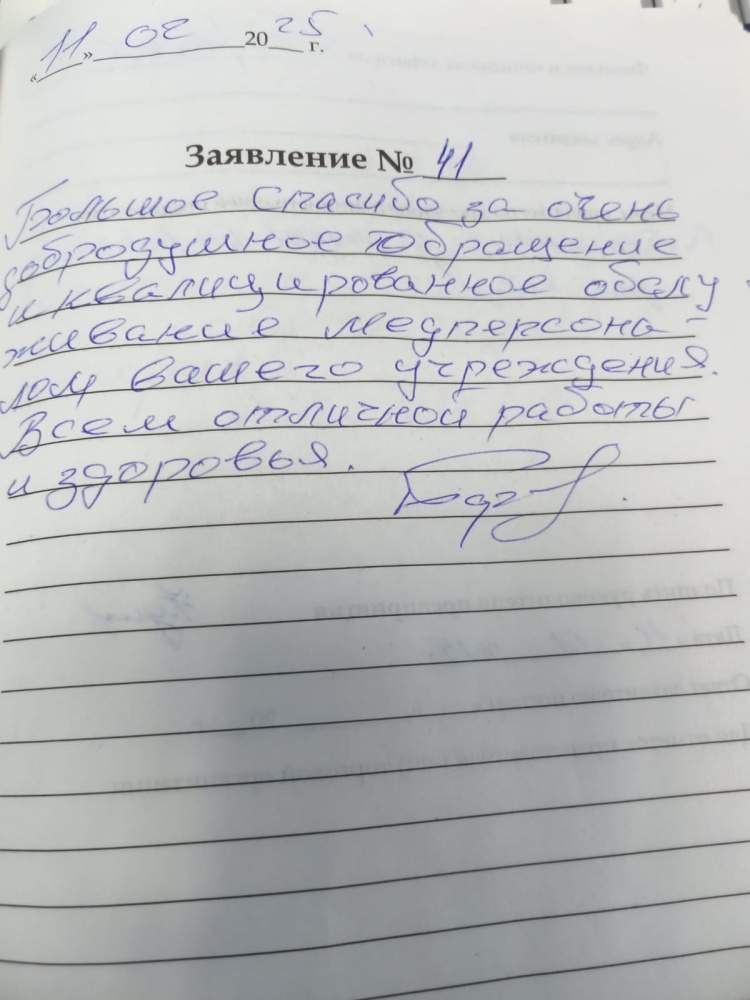 «11» 02 2025 г.
Заявление № 41
Большое спасибо за очень
добродушное обращение
и квалицированное обслу-
живание медперсона-
лом вашего учреждения.
Всем отличной работы
и здоровья.